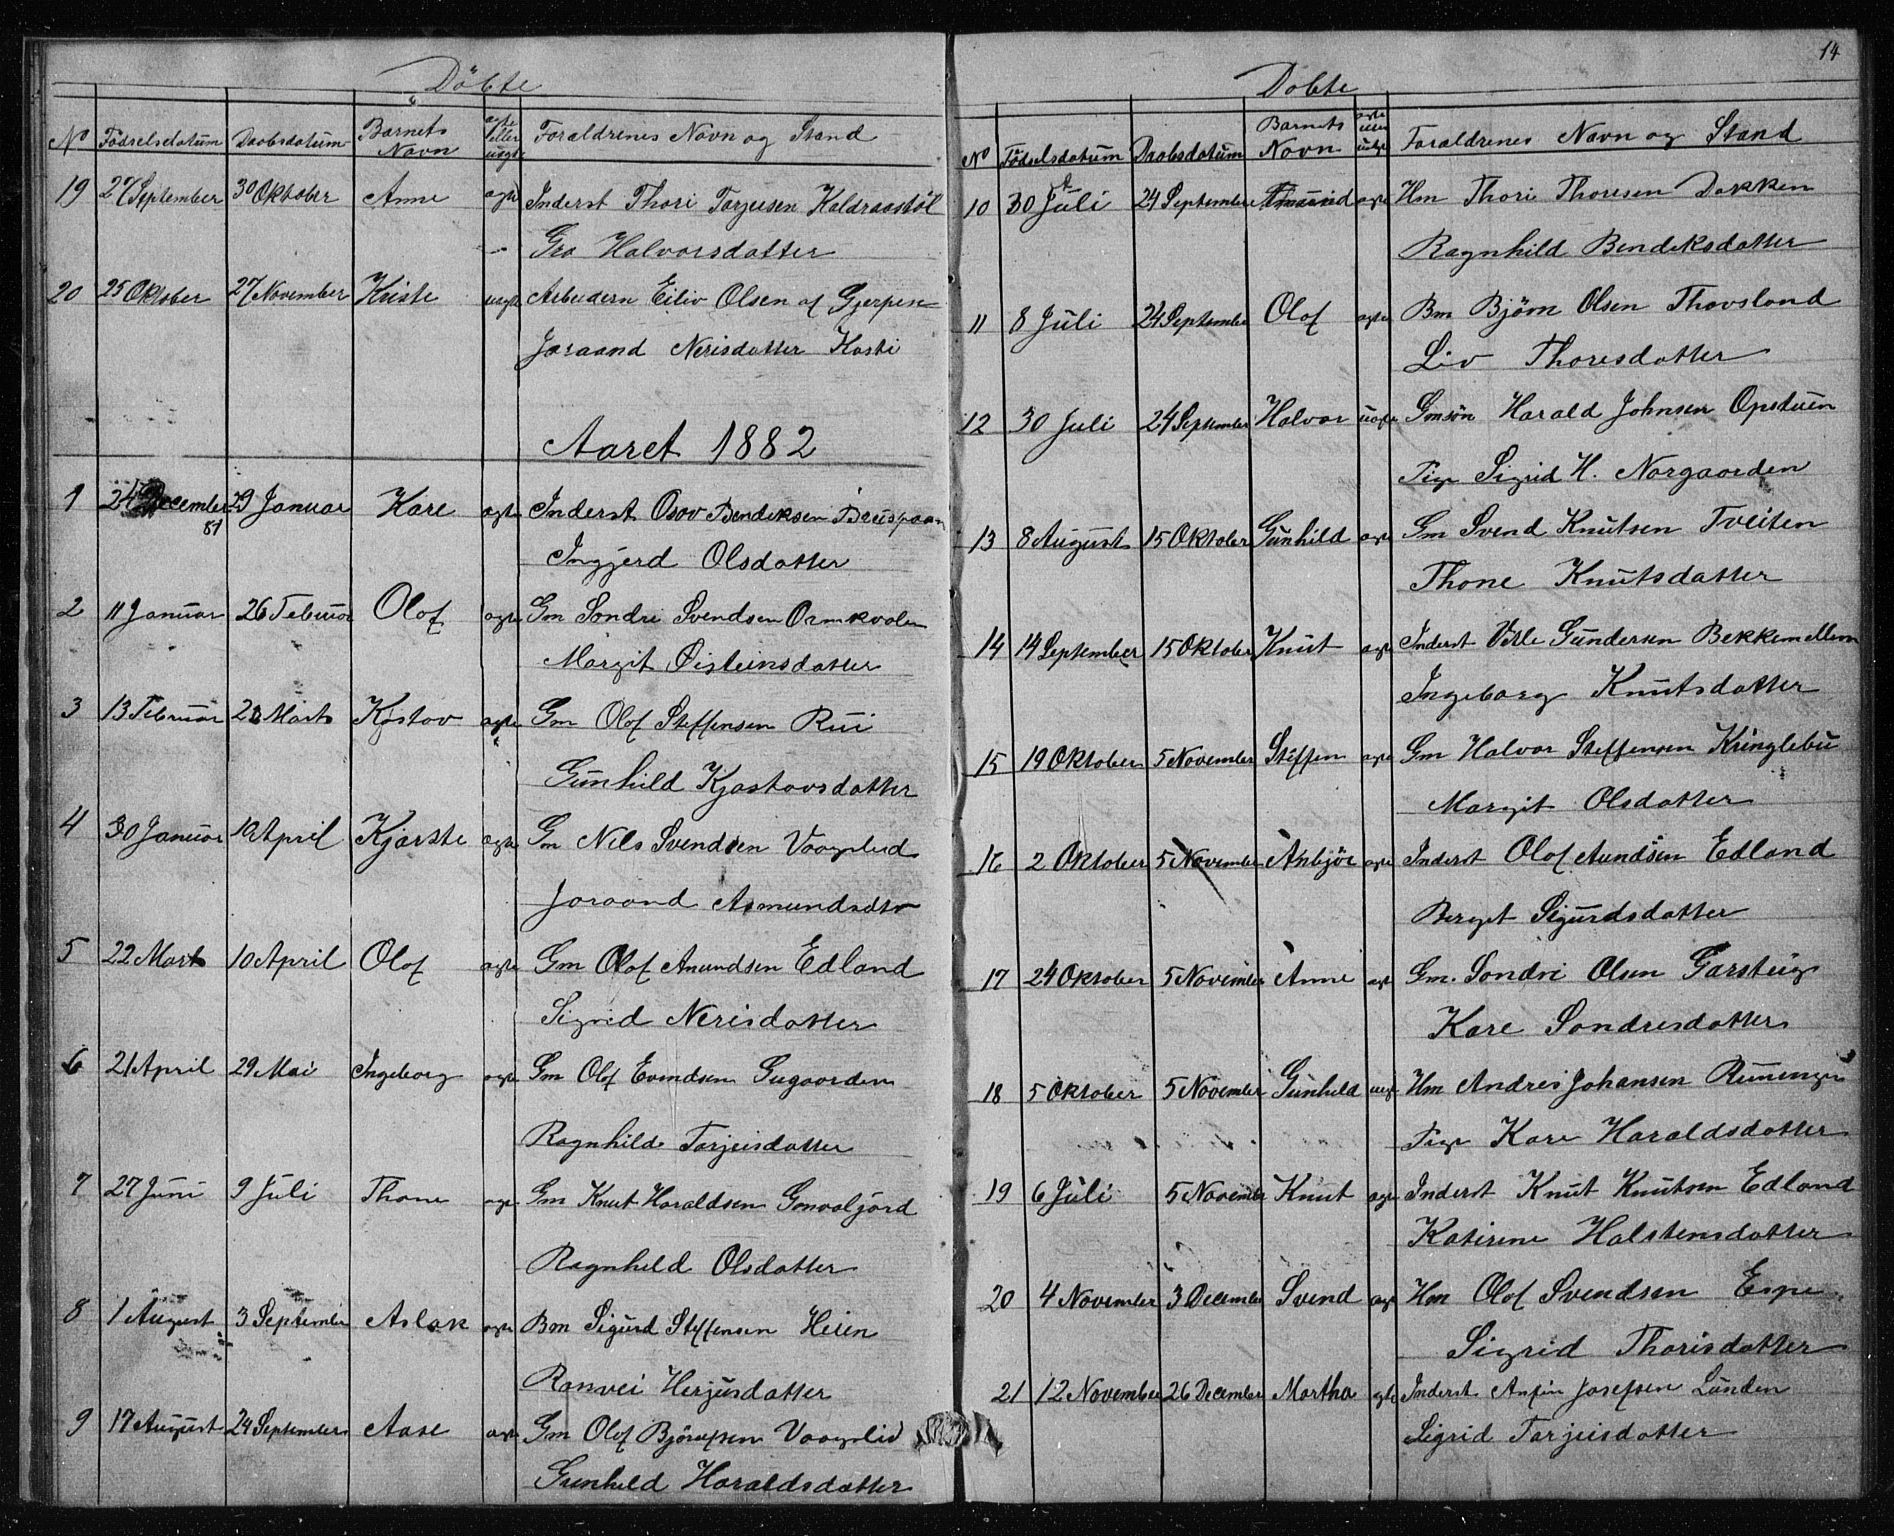 Döbte
No Födselsdatum Daabsdatum Barnets Navn ægte eller uægte Foraldrenes Navn og Stand
19 27 September 30 Oktober Anne agte Inderst Thori Tarjeisen Kaldraastöl
Gro Halvorsdatter
20 25 Oktober 27 November Kriste uagte Arbeidern Eiliv Olsen af Gjerpen
Joraand Nerisdatter Hasti
Aaret 1882
1 24 December 81 29 Januar Kare agte Inderst Osov Bendiksen
Ingjerd Olsdatter
2 11 Januar 26 Febuar Olof agte Gm Sondri Svendsen Ormkvalen
Margit Øisteinsdatter
3 13 Februar 28 Marts Kjøstov agte Gm Olof Steffensen Rui
Gunhild Kjøstovsdatter
4 30 Januar 10 April Kjørste agte Gm Nils Svendsen Vaagslid
Joraand Asmundsdtr
5 22 Mart 10 April Olof agte Gm Olof Anundsen Edland
Sigrid Nerisdatter
6 21 April 29 Mai Ingeborg agte Gm Olof Evindsen Gugaarden
Ragnhild Tarjeisdatter
7 27 Juni 9 Juli Thone agte Gm Knut Haraldsen
Ragnhild Olsdatter
8 1 August 3 September Aslak agte Bm Sigurd Steffensen Heien
Ranvei Herjusdatter
9 17 August 24 September Aase agte Gm Olof Björufsen Vaagslid
Gunhild Haraldsdatter
14
Dobte
No Födselsdatum Daabsdatum Barnets Navn agte eller uagte Foraldrenes Navn og Stand
10 30 Juli 24 September agte Hm Thori Thoresen Dokken
Ragnhild Bendiksdatter
11 8 Juli 24 September Olof agte Bm Bjørn Olsen Thovsland
Liv Thoresdatter
12 30 Juli 24 September Halvor uagte Gmsön Harald Johnsen Opstuen
Pige Sigrid H. Norgaarden
13 8 August 15 Oktober Gunhild agte Gm Svend Knutsen Tveiten
Thone Knutsdatter
14 14 September 15 Oktober Knut agte Inderst Vetle Gundersen Bekkemellem
Ingeborg Knutsdatter
15 19 Oktober 5 November Steffen agte Gm Halvor Steffensen Kringlebu
Margit Olsdatter
16 2 Oktober 5 November Anbjör agte Inderst Olof Aundsen Edland
Berget Sigurdsdatter
17 24 Oktober 5 November Anne agt Gm. Sondri Olsen Garsteig
Kare Sondresdatter
18 5 Oktober 5 November Gunhild uagt Hm Andres Johansen
Pige Kare Haraldsdatter
19 6 Juli 5 November Knut agte Inderst Knut Knutsen Edland
Katirine Halstensdatter
20 4 November 3 December Svend agt Hm Olof Svendsen Espe
Sigrid Thorisdatter
21 12 November 26 December Martha agte Inderst Anfin Josefsen Lunden
Sigrid Tarjeisdatter